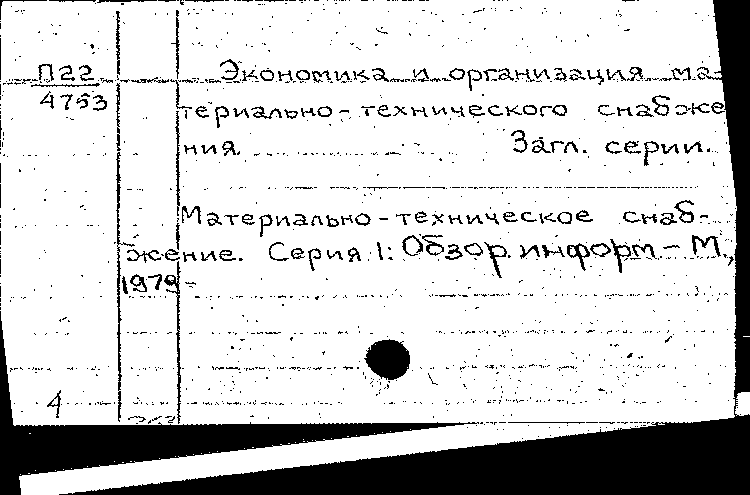 П22
4753
Экономика и организация ма-
териально-технического снабже
ния Загл. серии.
Материально-техническое снаб-
жение. Серия 1: Обзор. информ – М.,
1979-
4